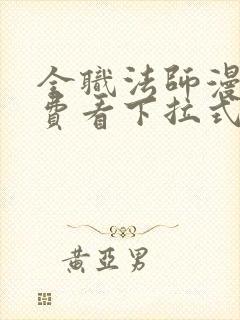 全職法師漫
費看下拉式
黃亞男